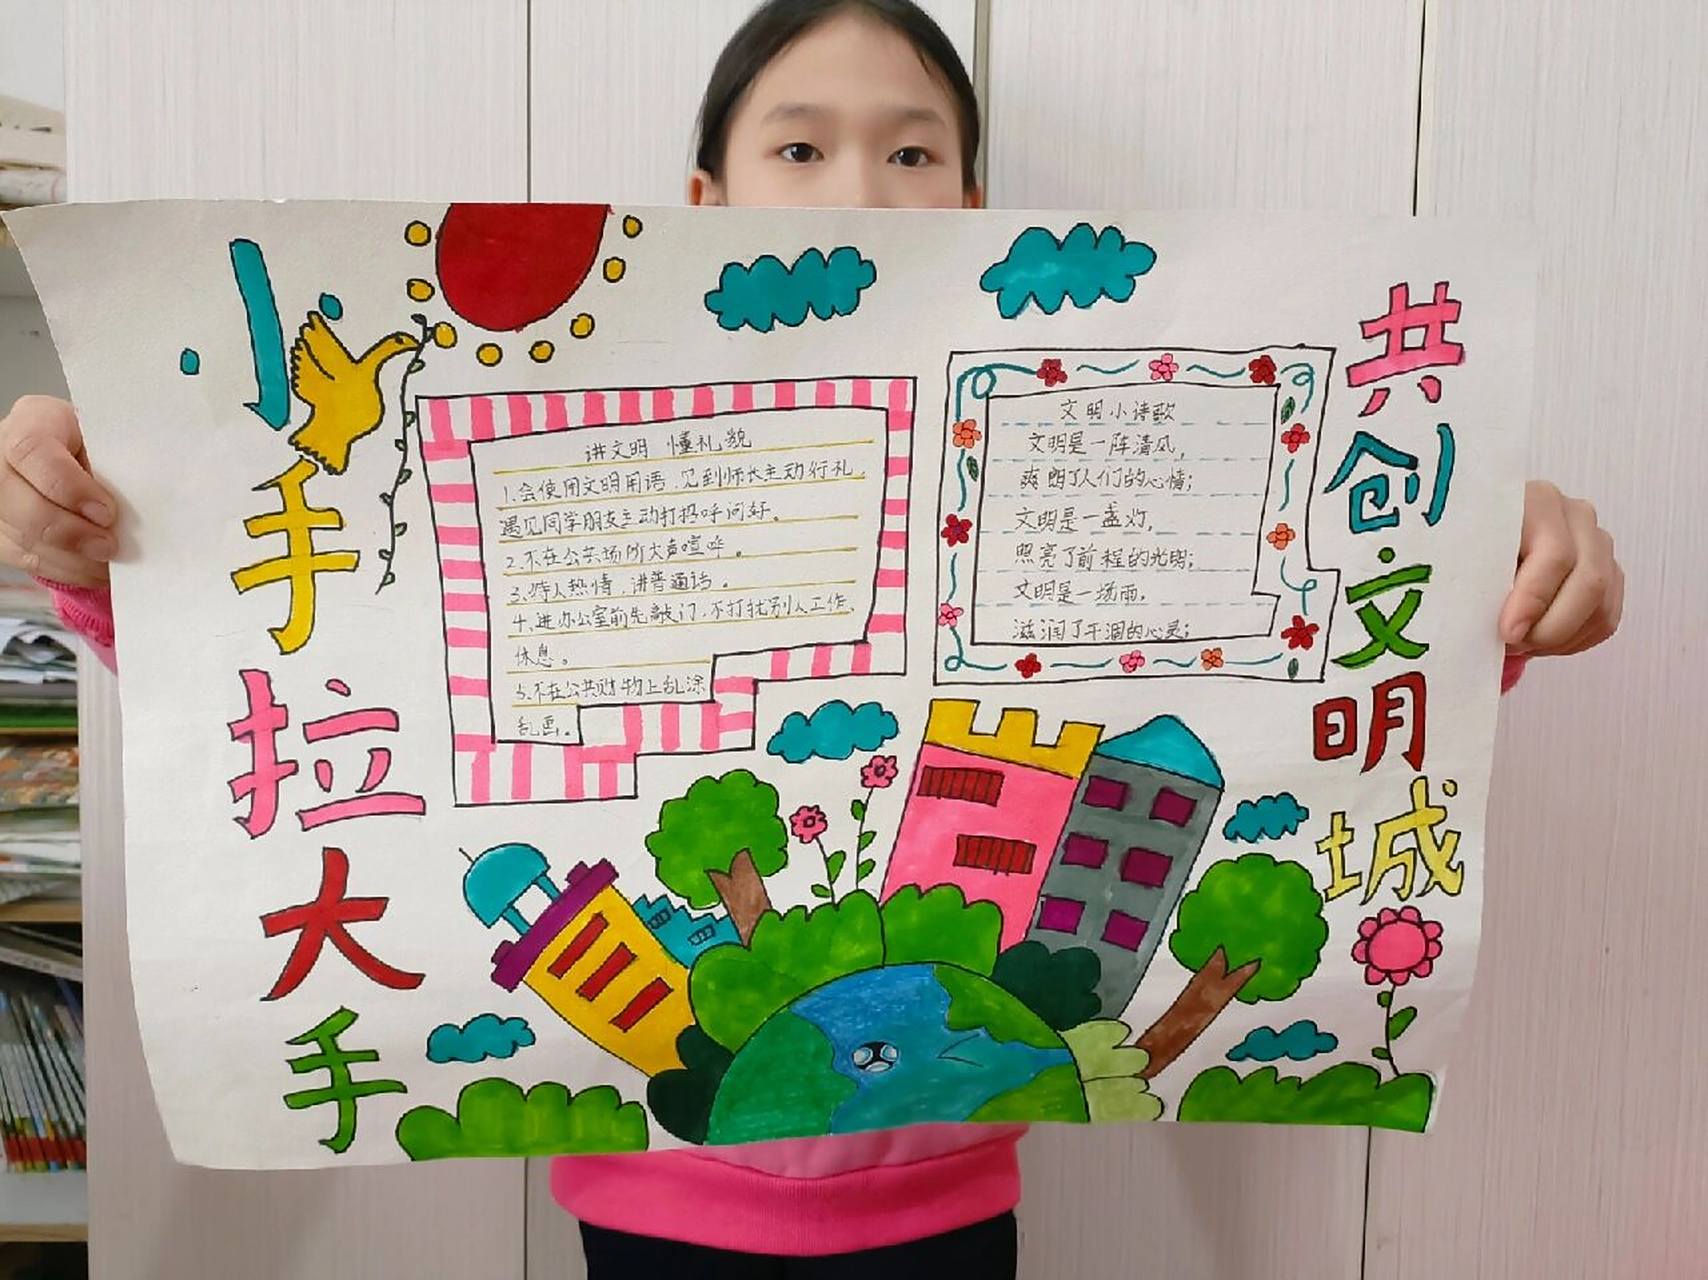 小手拉大手
讲文明 懂礼貌
1.会使用文明用语,见到师长主动行礼,
遇见同学朋友主动打招呼问好。
2.不在公共场所大声喧哗。
3.待人热情,讲普通话。
4.进办公室前先敲门,不打扰别人工作、
休息。
5.不在公共财物上乱涂
乱画。
文明小诗歌
文明是一阵清风,
爽朗了人们的心情;
文明是一盏灯,
照亮了前程的光明;
文明是一场雨,
滋润了干涸的心灵;
共创文明城